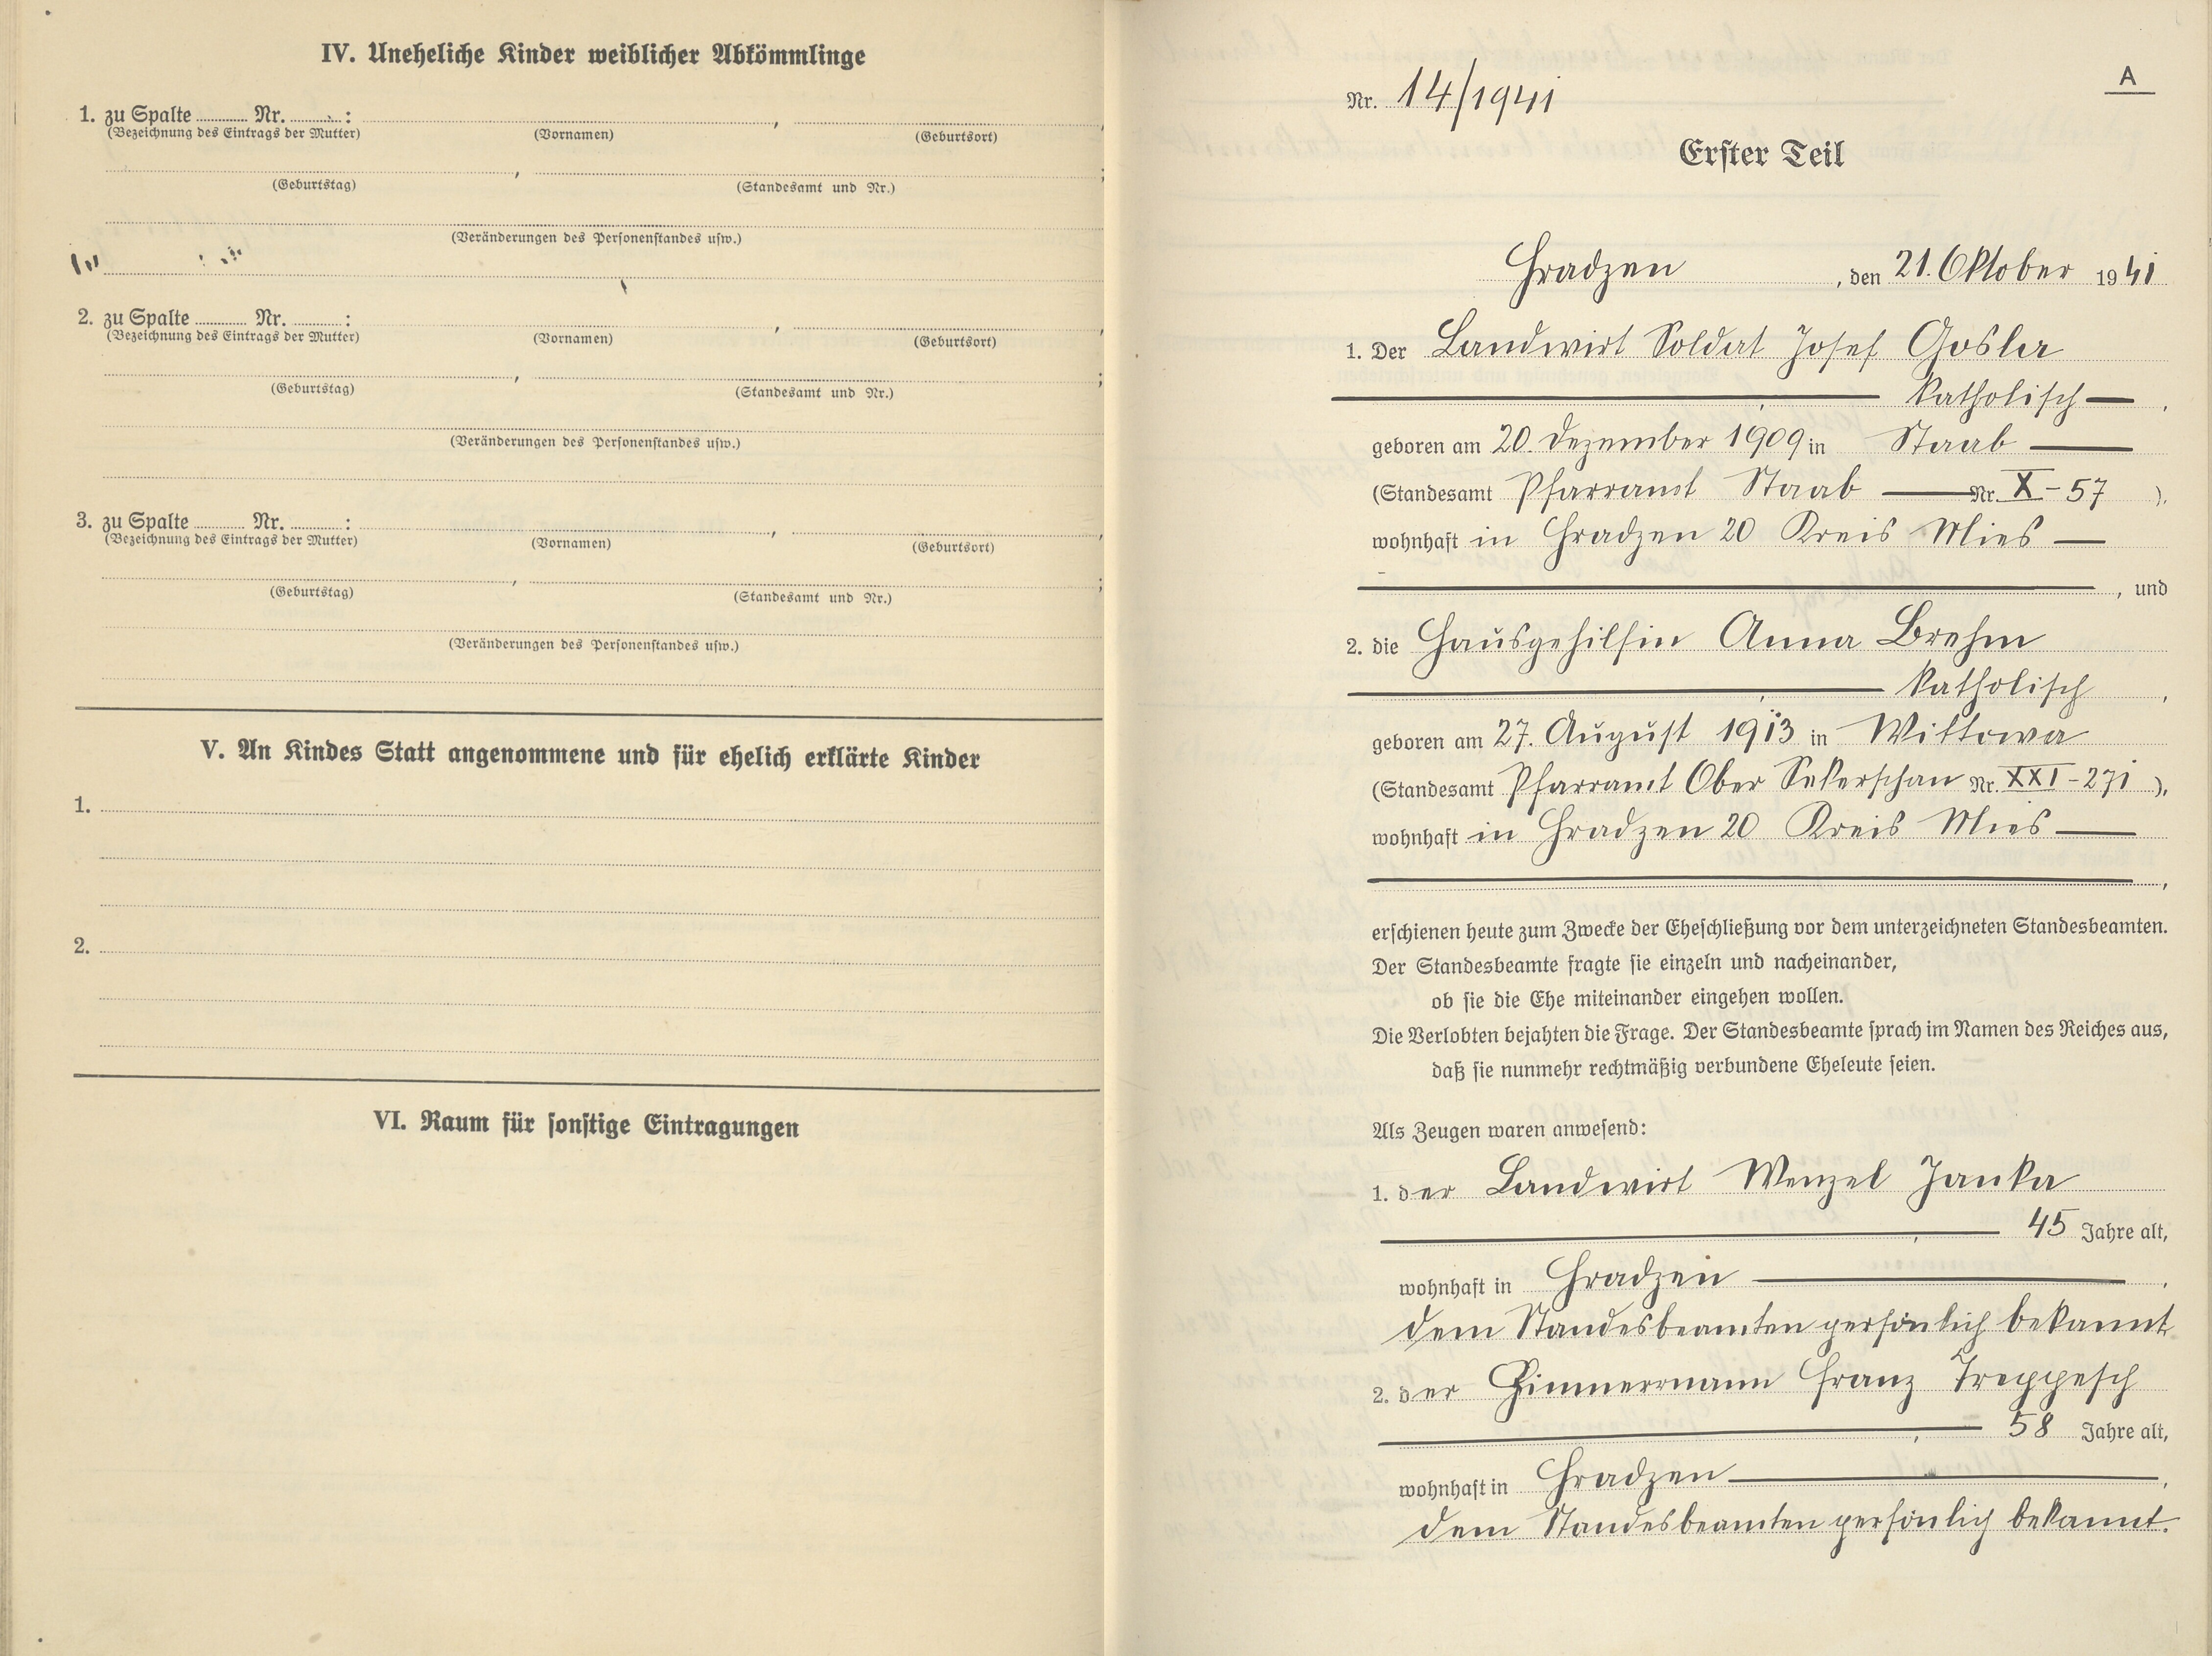 IV. Uneheliche Kinder weiblicher Abkömmlinge
1. zu Spalte ........ Nr. ........ :
(Bezeichnung des Eintrags der Mutter) (Vornamen) , (Geburtsort) ,
(Geburtstag) , (Standesamt und Nr.) ;
(Veränderungen des Personenstandes usw.)
2. zu Spalte ........ Nr. ........ :
(Bezeichnung des Eintrags der Mutter) (Vornamen) , (Geburtsort) ,
(Geburtstag) , (Standesamt und Nr.) ;
(Veränderungen des Personenstandes usw.)
3. zu Spalte ........ Nr. ........ :
(Bezeichnung des Eintrags der Mutter) (Vornamen) , (Geburtsort) ,
(Geburtstag) , (Standesamt und Nr.) ;
(Veränderungen des Personenstandes usw.)
V. An Kindes Statt angenommene und für ehelich erklärte Kinder
1.
2.
VI. Raum für sonstige Eintragungen
A
Nr. 14/1941
Erster Teil
Hradzen, den 21. Oktober 1941
1. Der Landwirt Soldat Josef Gosler
katholisch ,
geboren am 20. Dezember 1909 in Staab
(Standesamt Pfarramt Staab Nr. X - 57 ),
wohnhaft in Hradzen 20 Kreis Mies
, und
2. die Hausgehilfin Anna Brehm
katholisch ,
geboren am 27. August 1913 in Wittowa
(Standesamt Pfarramt Ober Sekerschan Nr. XXI - 271 ),
wohnhaft in Hradzen 20 Kreis Mies
,
erschienen heute zum Zwecke der Eheschließung vor dem unterzeichneten Standesbeamten.
Der Standesbeamte fragte sie einzeln und nacheinander,
ob sie die Ehe miteinander eingehen wollen.
Die Verlobten bejahten die Frage. Der Standesbeamte sprach im Namen des Reiches aus,
daß sie nunmehr rechtmäßig verbundene Eheleute seien.
Als Zeugen waren anwesend:
1. der Landwirt Wenzel Janka
45 Jahre alt,
wohnhaft in Hradzen ,
dem Standesbeamten persönlich bekannt
2. der Zimmermann Franz Treppesch
58 Jahre alt,
wohnhaft in Hradzen ,
dem Standesbeamten persönlich bekannt.